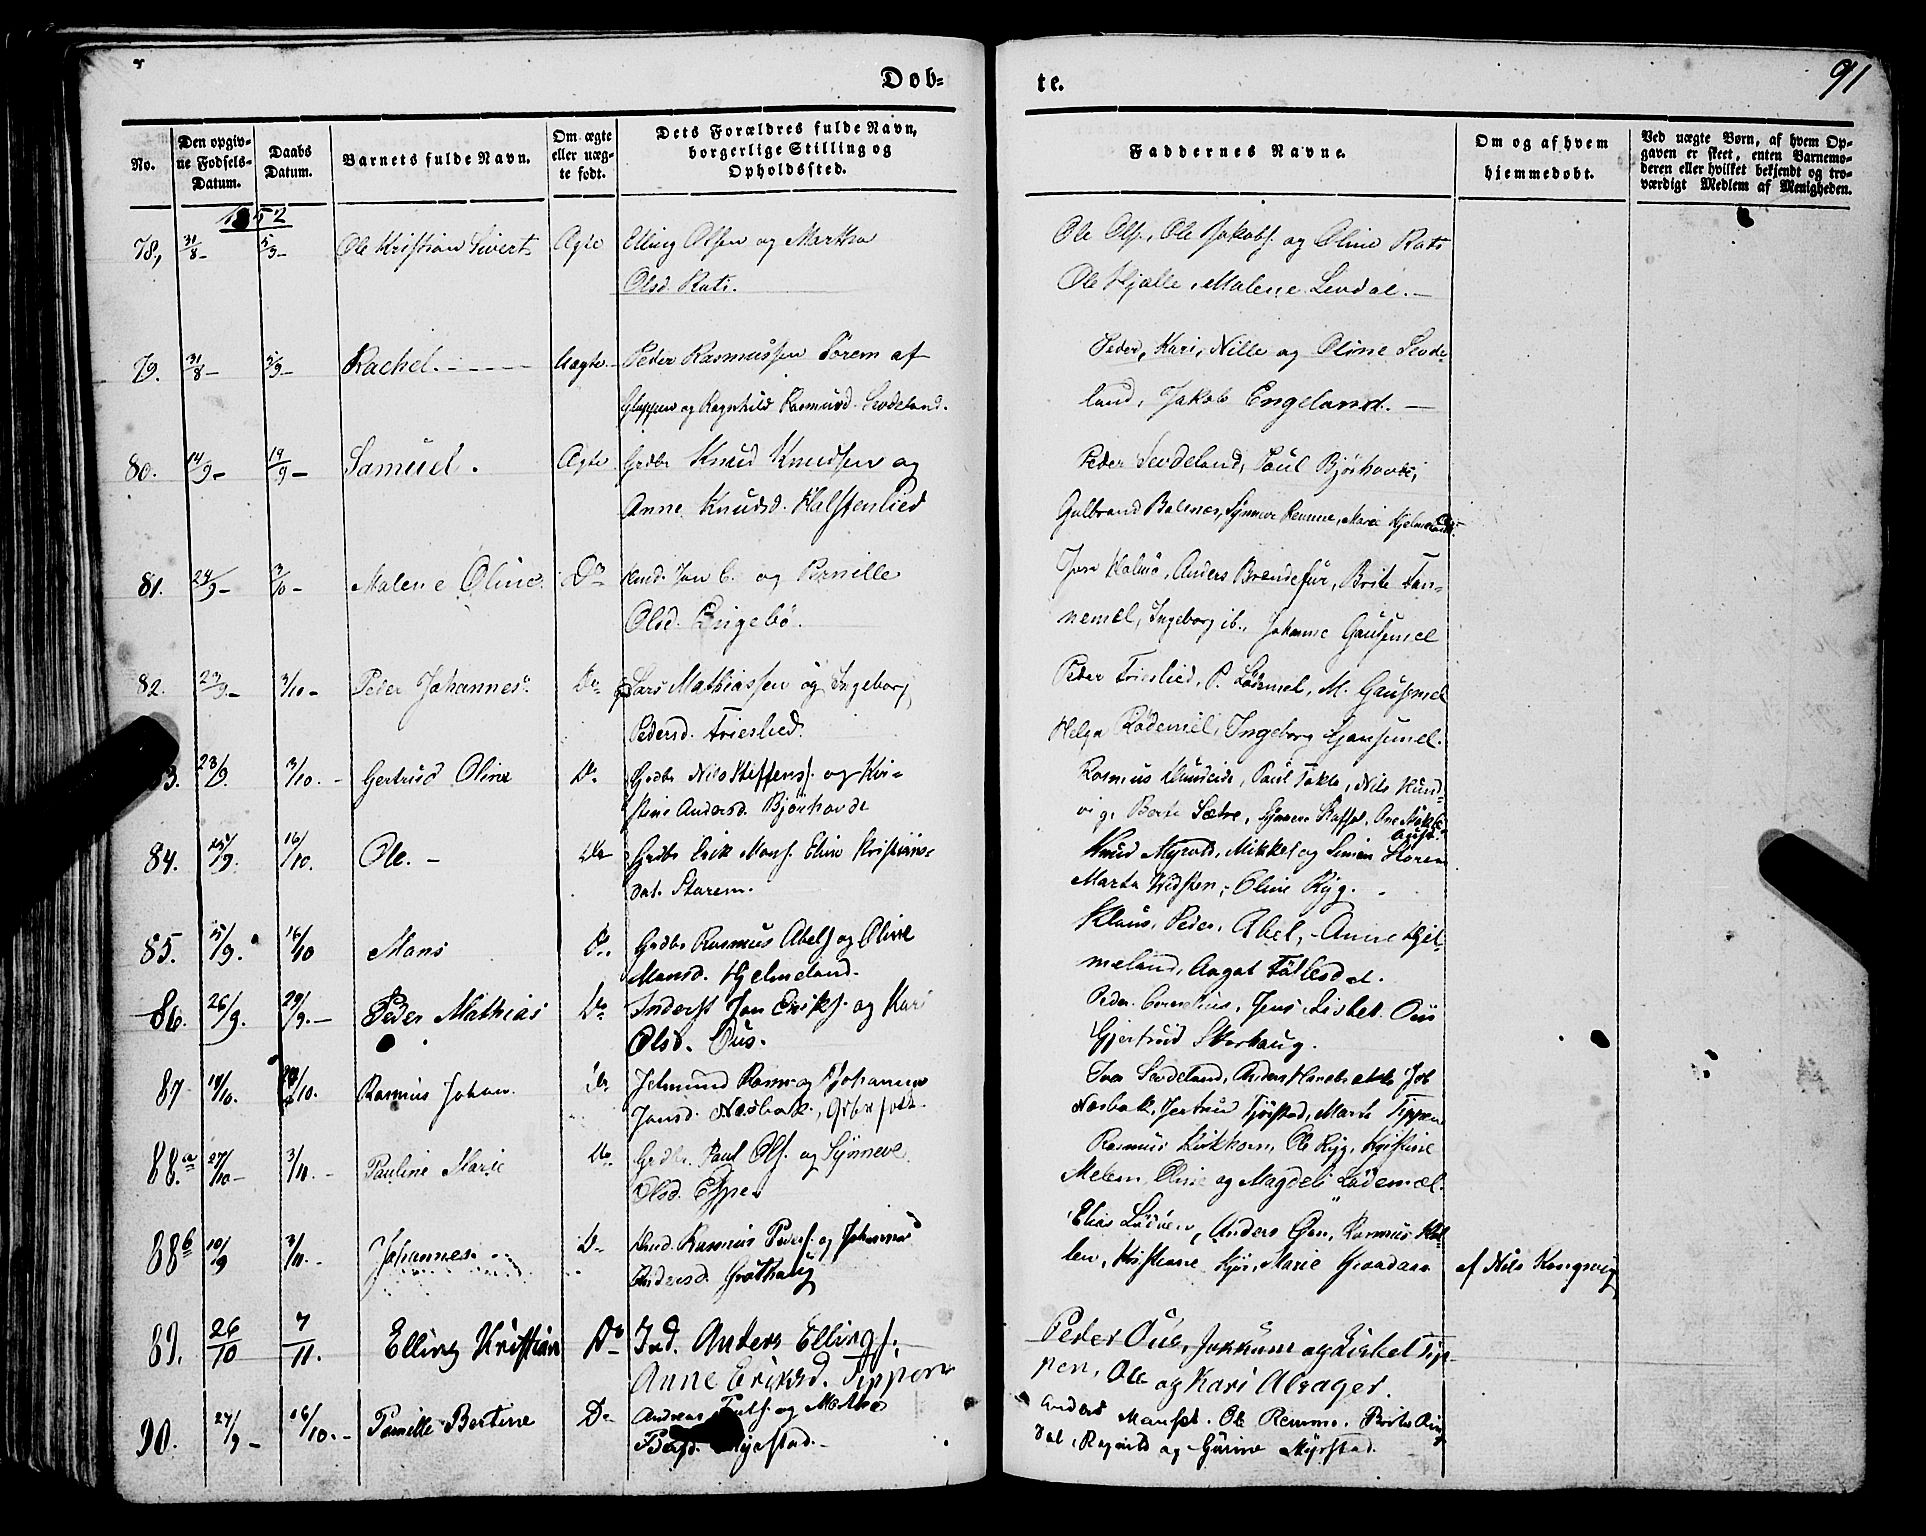 Dob=
te.
91
No.
Den opgiv-
ne Fodsels-
Datum.
Daabs
Datum.
Barnets fulde Navn.
Om ægte
eller uæg-
te født.
Dets Forældres fulde Navn,
borgerlige Stilling og
Opholdssted.
Faddernes Navne.
Om og af hvem
hjemmedobt.
Ved uægte Børn, af hvem Op-
gaven er skeet, enten Barnemo-
deren eller hvilket bekjendt og tro-
værdigt Medlem af Menigheden.
1852
78, 31/8- 5/9- Ole Kristian Sivert Ægte Elling Olsen og Martha
Olsd. Rati.
Ole Ols., Ole Jakobs. og Oline Rati
Ole Hjelle, Malene Levdal.
79. 31/8- 5/9- Rachel. Uægte Peder Rasmussen Sørem af
Gloppen og Ragnhild Rasmusd. Sevdeland.
Peder, Kari, Nille og Oline Sevde-
land, Jakob Engeland.
80. 14/9- 19/9- Samuel. Ægte Grdbr Knud Knudsen og
Anne Knudsd. Halstenlied
Peder Sevdeland, Paul Bjørhovde,
Gulbrand Balsnes, Synneve Remme, Mari Hjelmeland
81. 24/9- 3/10- Malene Oline Do og Pernille
Olsd. Engebø.
Jon Holmø, Anders Brendefur, Brite Tan-
nemel, Ingeborg ib., Johanne Gausemel
82. 23/9- 3/10- Peder Johannes. Do Lars Mathiassen og Ingeborg
Pedersd. Frieslied.
Peder Frieslied, P. Lødemel, M. Gausemel
Helga Rødemel, Ingeborg Gausemel.
23/9. 3/10. Gertrud Oline Do. Grdbr Nils Steffens. og Kri-
stine Andersd. Bjørhovde
Rasmus Paul Takle, Nils Rund-
vig, Berte Sætre,
84. 15/9. 16/10. Ole. Do Grdbr Erik Mons. Eline Kristians-
dat. Storem.
Knud Myrold, Mikkel og Simon Storem
Marta Widsten, Oline Ryg.
85. 15/9. 16/10 Mons Do. Grdbr Rasmus Abels og Oline
Monsd. Hjelmeland.
Klaus, Peder, Abel, Anne Hjel-
meland, Aagot Tallesdat.
86. 26/9. 29/9. Peder Mathias Do Inderst Jon Eriks. og Kari
Olsd. Ous.
Peder Cornelius, Jens Lisbet Ous
Gjertrud Skorhaug.
87 14/10. /10. Rasmus Johan. Do Jetmund Rasm. og Johanne
Jonsd. Næsbak.,
Iver Sevdeland, Anders Job
Næsbak, Jertrud Marte Tippen
88.a 27/10- 3/11. Pauline Marie Do. Grdbr. Paul Ols. og Synneve
Olsd.
Rasmus Ole Ryg, Kristine
Melem, Oline og Magdeli Lødemel.
88b 10/9 3/11. Johannes. Do Rasmus Peders. og Johanne
Andersd. Grøthaug
Elias Anders Øen, Rasmus Hol-
len, Kristiane Marie Graadaas
af Nils Kongsvig
89. 26/10 7/11. Elling Kristian Do Ind. Anders Ellings.
Anne Eriksd. Tippen
Peder Ous, Jakkum og Lisbet Tip-
pen, Ole og Kari Alsager.
90. 27/9- 16/10.- Pernille Bertine Do Andreas og Martha
Myrstad.
Anders Ole Remme. Brite
dal, Ragnild og Gurine Myrstad.